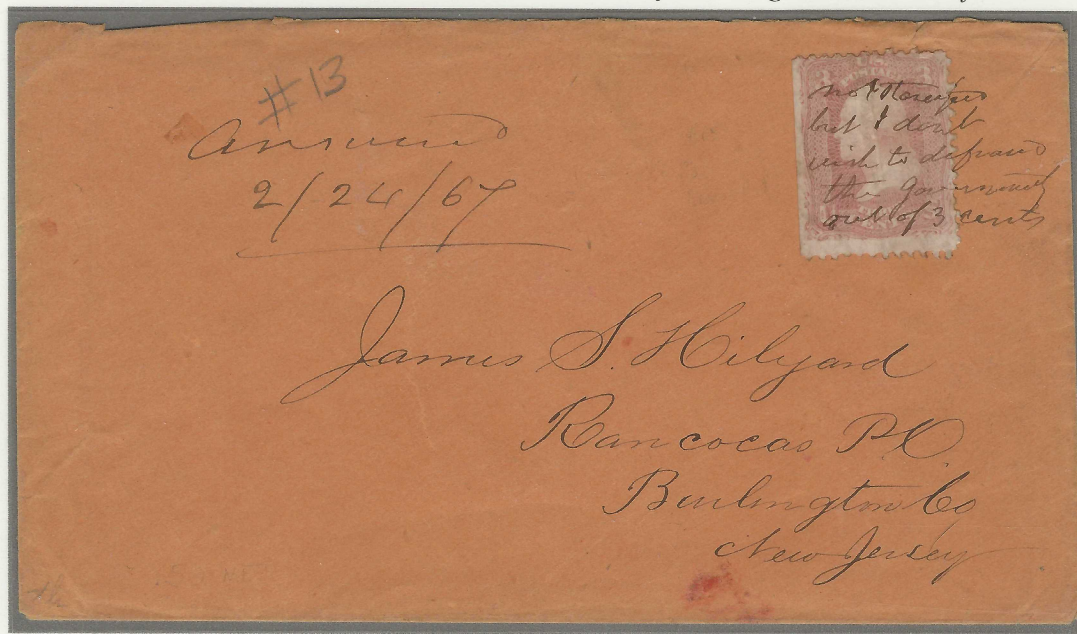 #13
Answered
2/24/67
not
but I don't
wish to defraud
the Government
out of 3 cents
James S. Hilyard
Rancocas P.O.
Burlington Co
New Jersey